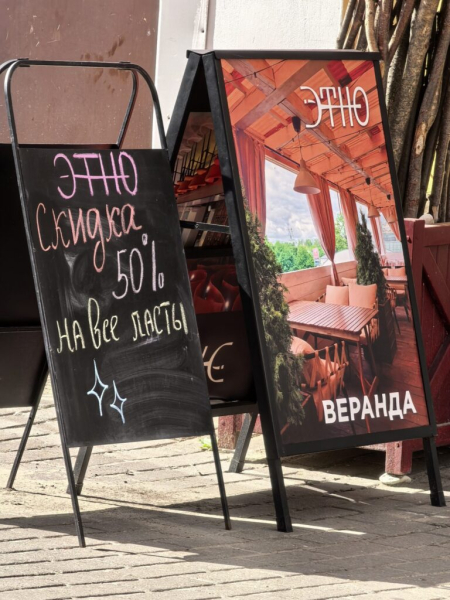 ЭТНО
Скидка
50%
на все пасты
ЭТНО
ВЕРАНДА